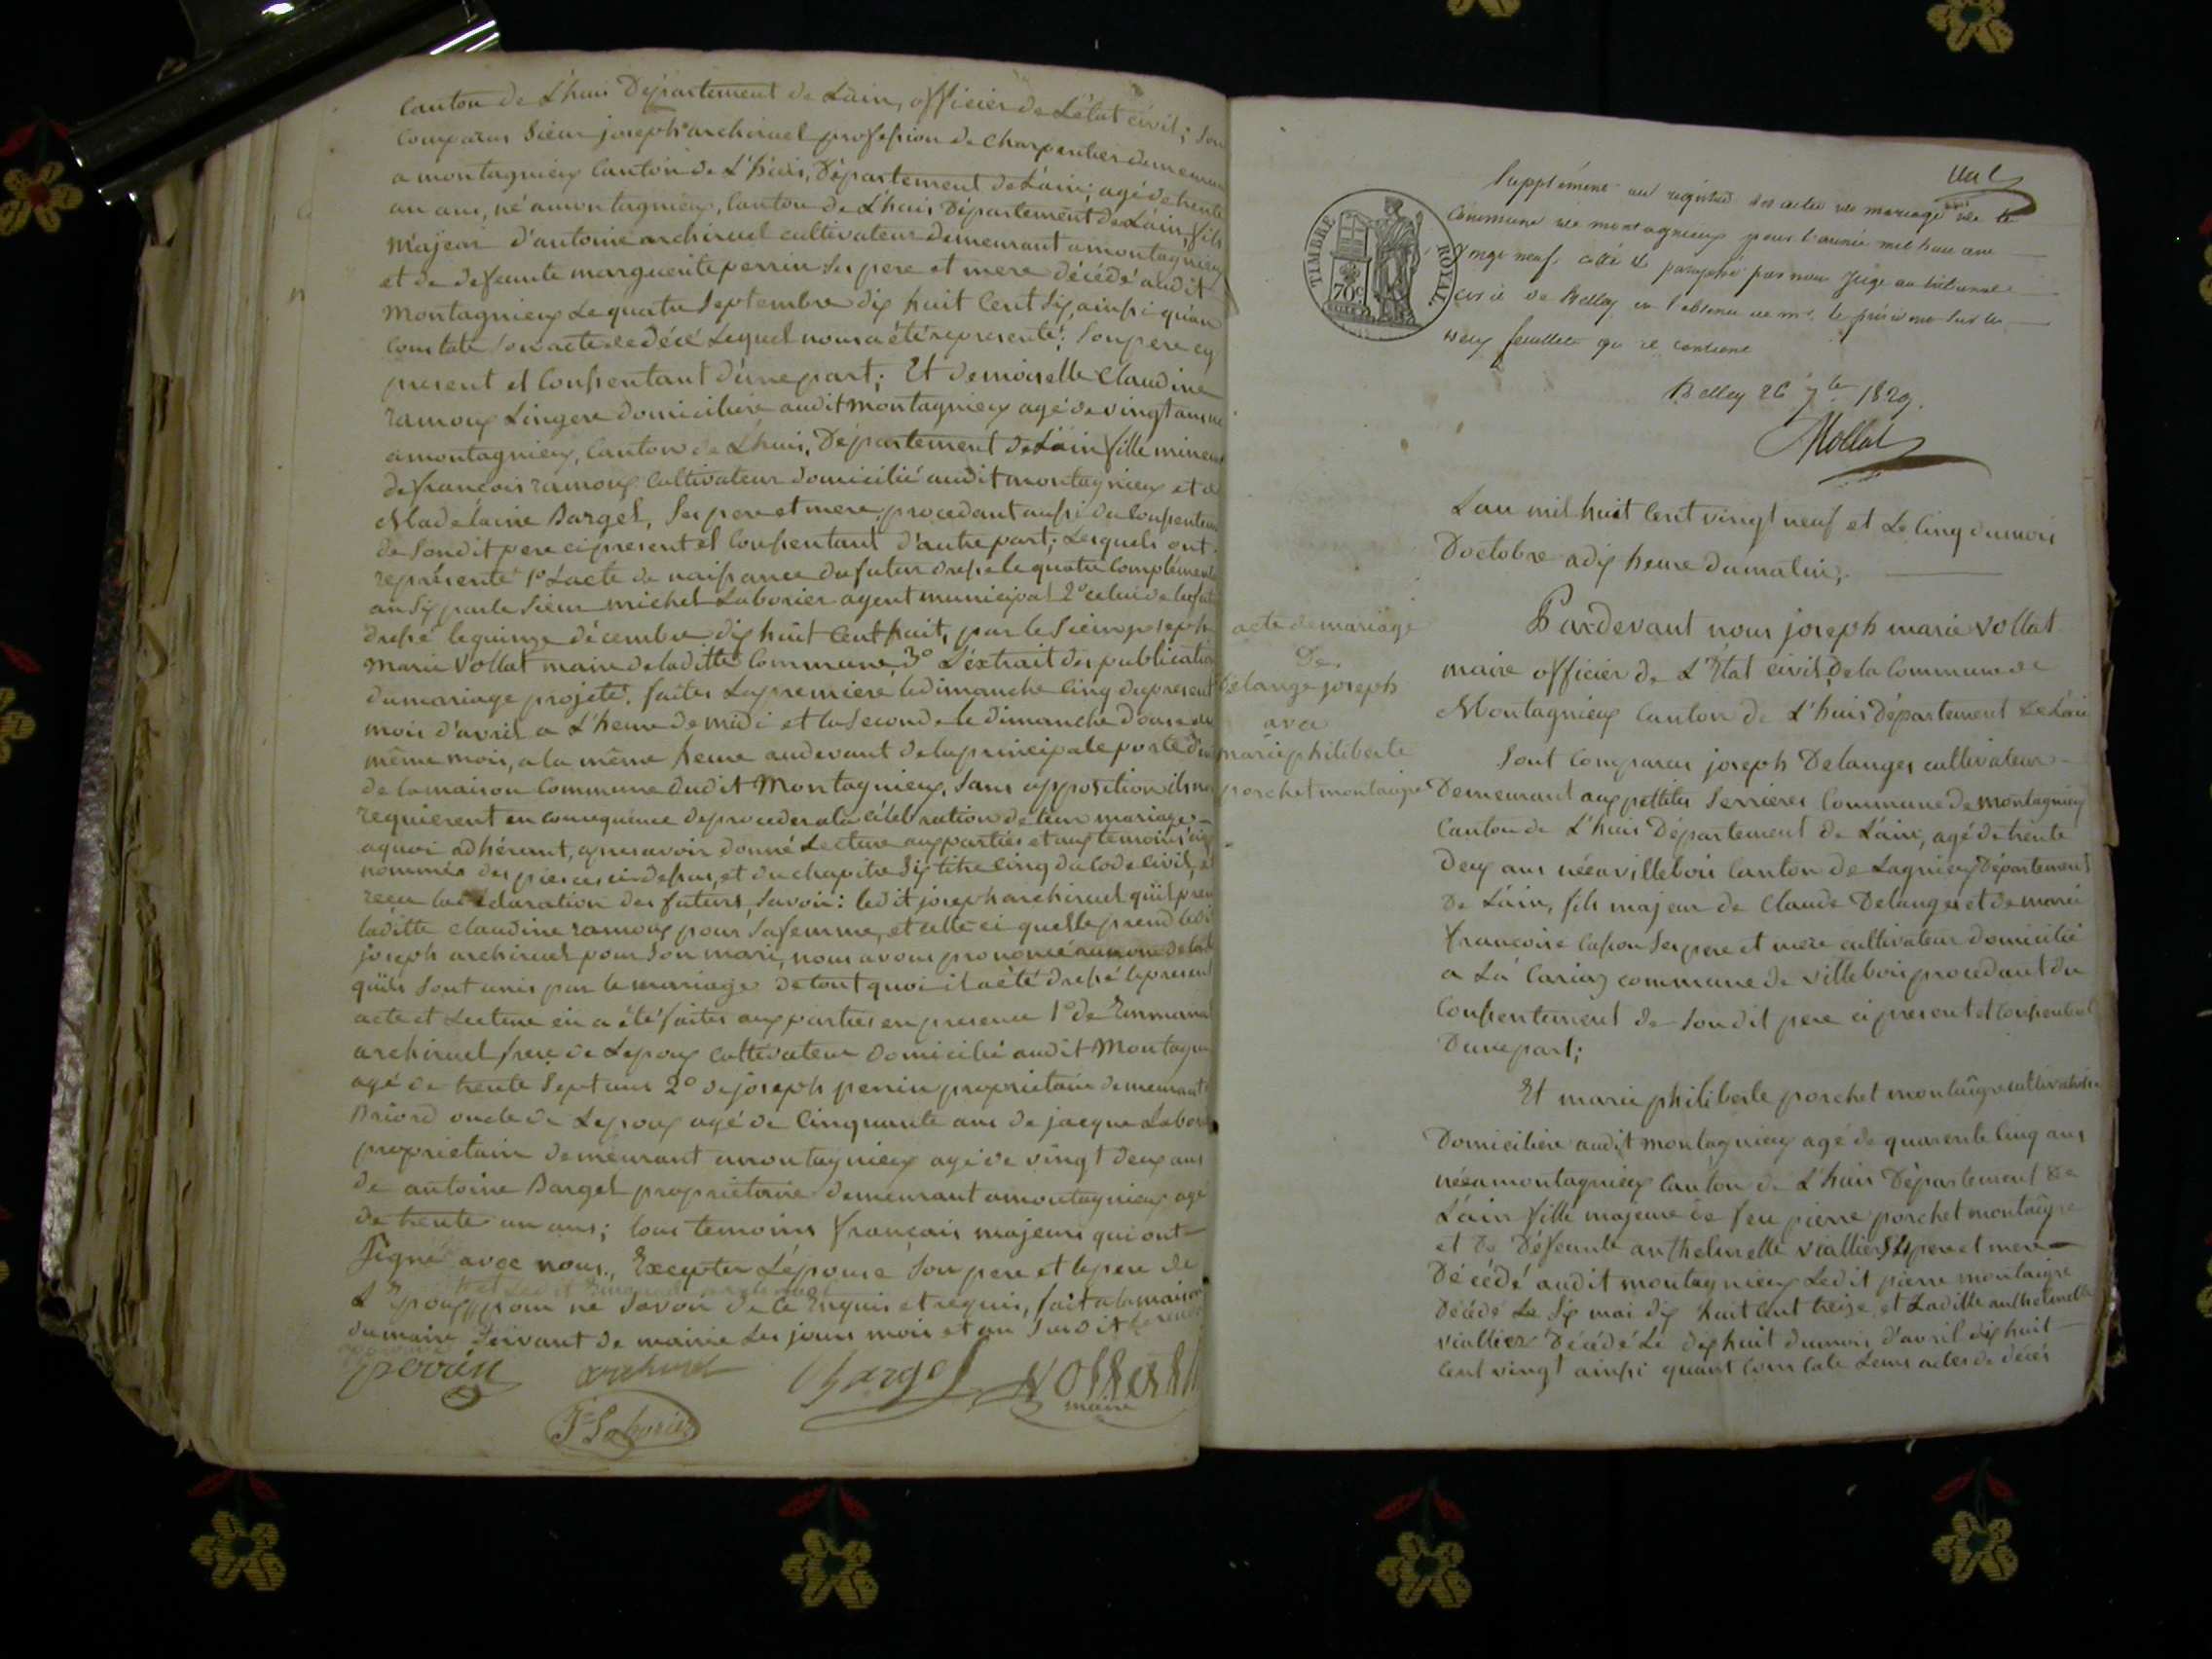 Canton de L'huis Département de Lain, officier de L'état civil; Son
Comparus Sieur joseph archiruel profession de Charpentier demeuran
a montagnieux Canton de L'huis, Département de Lain; agé de trente
un ans, né a montagnieux, Canton de L'huis Département de Lain, fils
Majeur d'antoine archiruel cultivateur demeurant a montagnieux
et de defeunte marguerite perrin Ses pere et mere décédé audit
Montagnieux Le quatre Septembre dix huit Cent Six, ainsi quan
Constate Son acte de décé Lequel nous a été représenté; Son pere cy
present et Consentant d'une part; Et demoiselle Claudine
ramoux Lingere domiciliée audit Montagnieux agé de vingt ans né
a montagnieux, Canton de L'huis, Département de Lain fille mineur
de françois ramoux Cultivateur domicilié audit montagnieux et d
Madelaine Bargel, Ses pere et mere, procedant aussi du Consentem
de Son dit pere ci present et Consentant d'autre part; Lesquels ont
représenté 1o L'acte de naissance du futur dressé le quatre Complement
an Six par le Sieur michel Laborier agent municipal 2o celui de la fut
dressé le quinze décembre dix huit Cent huit, par le Sieur joseph
Marie Vollat maire de laditte Commune, 3o L'éxtrait des publication
du mariage projeté, faites La premiere le dimanche Cinq du present
mois d'avril a L'heure de midi et la Seconde le dimanche douze du
même mois, a la même heure audevant de la principale porte d'en
de la maison Commune dudit Montagnieux, Sans opposition ils no
requierent en consequence de proceder a la célébration de leur mariage
aquoi adhérant, apres avoir donné Lecture aux parties et aux temoins
nommés des pieces ci dessus, et du chapitre Six titre Cinq du Code Civil, et
reçu la déclaration des futurs, Savoir: ledit joseph archiruel quil pren
laditte claudine ramoux pour Sa femme, et celle ci quelle prend ledi
joseph archiruel pour Son mari, nous avons prononcé au nom de la loi
quils Sont unis par le mariage de tout quoi il a été dressé le present
acte et Lecture en a été faites aux parties en presence 1o de Emmanuel
archiruel frere de Lepoux Cultivateur domicilié audit Montagn
agé de trente Sept ans 2o de joseph perrin propriétaire demeurant
Briord oncle de Lepoux agé de Cinquante ans de jacque Labor
propriétaire demeurant a montagnieux agé de vingt deux ans
de antoine Bargel propriétaire demeurant a montagnieux agé
de trente un ans; tous temoins français majeurs qui ont
Signé avec nous, Excepter Lépouse Son pere et le pere de
L'Epoux pour ne Savoir de ce Enquis et requis, fait a la maison
du maire Servant de mairie Les jours mois et an Susdit
perrin archiruel Bargel Vollat
maire
J Laborier
Supplément au registre des actes de mariage de la
Commune de montagnieux pour l'année mil huit cent
vingt neuf coté et paraphé par nous Juge au tribunal
civil de Belley en l'absence de mr. le président sur les
deux feuillets qu'il contient
Belley 26 7bre 1829.
Mollat
TIMBRE ROYAL.
70c
acte de mariage
De
Delange joseph
avec
marie philiberte
porchet montaigre
Lan mil huit Cent vingt neuf et Le Cinq du mois
D'octobre a dix heure du matin,
Pardevant nous joseph marie Vollat
maire officier de L'Etat civil, de la Commune de
Montagnieux Canton de L'huis Département de Lain
Sont Comparus joseph Delanges cultivateur
Demeurant aux pettites Serrieres Commune de Montagnieux
Canton de L'huis Département de Lain, agé de trente
Deux ans née a villebois Canton de Lagnieux Département
De Lain, fils majeur de Claude Delanges et de marie
françoise Ses pere et mere cultivateur domicilié
a La commune de villebois procedant du
Consentement de Son dit pere ci present et Consentant
D'une part;
Et marie philiberte porchet montaigre cultivatrice
Domiciliée audit montagnieux agé de quarente Cinq ans
née a montagnieux Canton de L'huis Département de
Lain fille majeure de feu pierre porchet montaigre
et de Défeunte anthelmette viallier Ses pere et mere
Décédé audit montagnieux Ledit pierre montaigre
Décédé Le Six mai dix huit Cent treize, et Laditte anthelmette
viallier Décédé Le dix huit du mois d'avril dix huit
Cent vingt ainsi quant Constate Leurs actes de décès